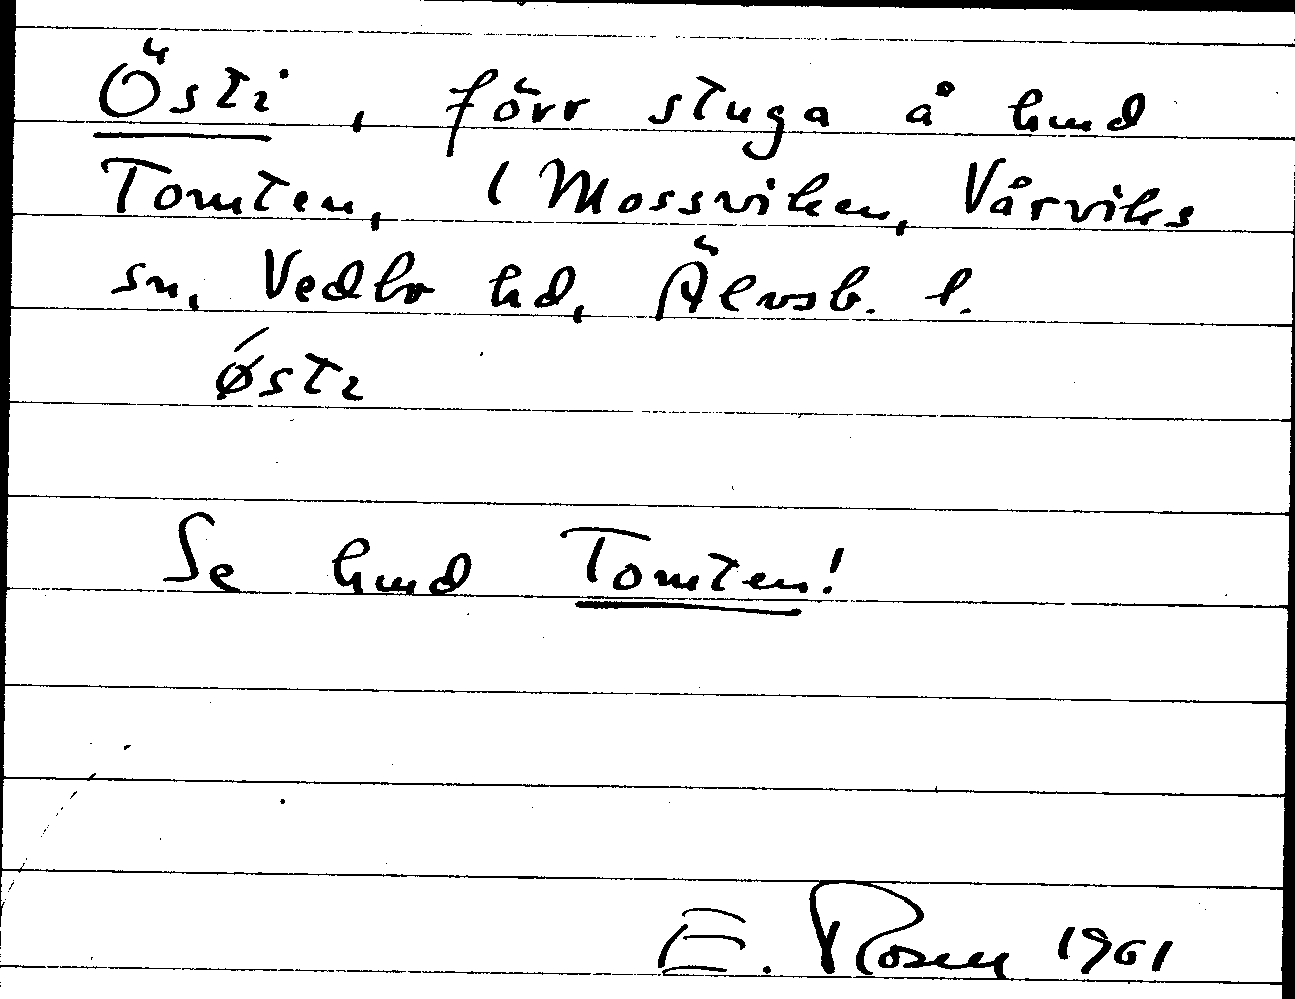 Östi, förr stuga å hmd
Tomten, 1 Mossviken, Vårviks
sn, Vedbo hd, Älvsb. l.
ǿstɩ
Se hmd Tomten!
E. Rosen 1961